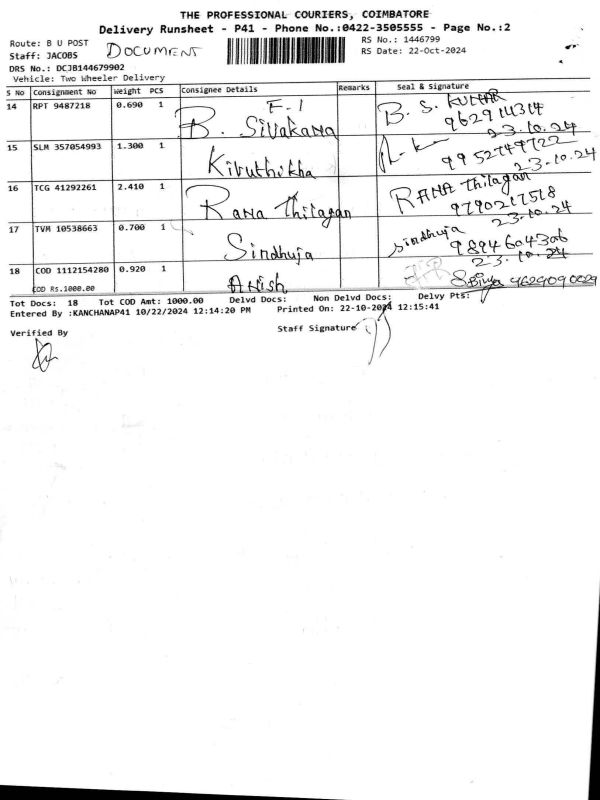 THE PROFESSIONAL COURIERS, COIMBATORE
Delivery Runsheet - P41 - Phone No.:0422-3505555 - Page No.:2
Route: B U POST DOCUMENT RS No.: 1446799
Staff: JACOBS RS Date: 22-Oct-2024
DRS No.: DCJB144679902
Vehicle: Two Wheeler Delivery
S No Consignment No Weight PCS Consignee Details Remarks Seal & Signature
14 RPT 9487218 0.690 1 F-1 B. S. KUMAR
B. Sivakama 9629141314
23.10.24
15 SLM 357054993 1.300 1 9952749722
Kiruthikha 23.10.24
16 TCG 41292261 2.410 1 RAMA Thilagan
Rama Thilagan 9790217518
23.10.24
17 TVM 10538663 0.700 1 Sindhuja
Sindhuja 9894604306
23.10.24
18 COD 1112154280 0.920 1
COD Rs.1000.00 Anish 9629090029
Tot Docs: 18 Tot COD Amt: 1000.00 Delvd Docs: Non Delvd Docs: Delvy Pts:
Entered By :KANCHANAP41 10/22/2024 12:14:20 PM Printed On: 22-10-2024 12:15:41
Verified By Staff Signature